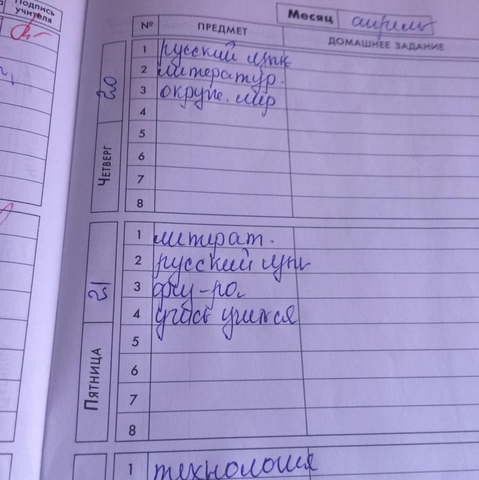 Подпись
учителя
Месяц апрель
№ ПРЕДМЕТ ДОМАШНЕЕ ЗАДАНИЕ
20 ЧЕТВЕРГ
1 русский язык
2 литератур.
3 окруж. мир
4
5
6
7
8
21 ПЯТНИЦА
1 литерат.
2 русский язык
3 физ-ра.
4 учись учится
5
6
7
8
1 технология